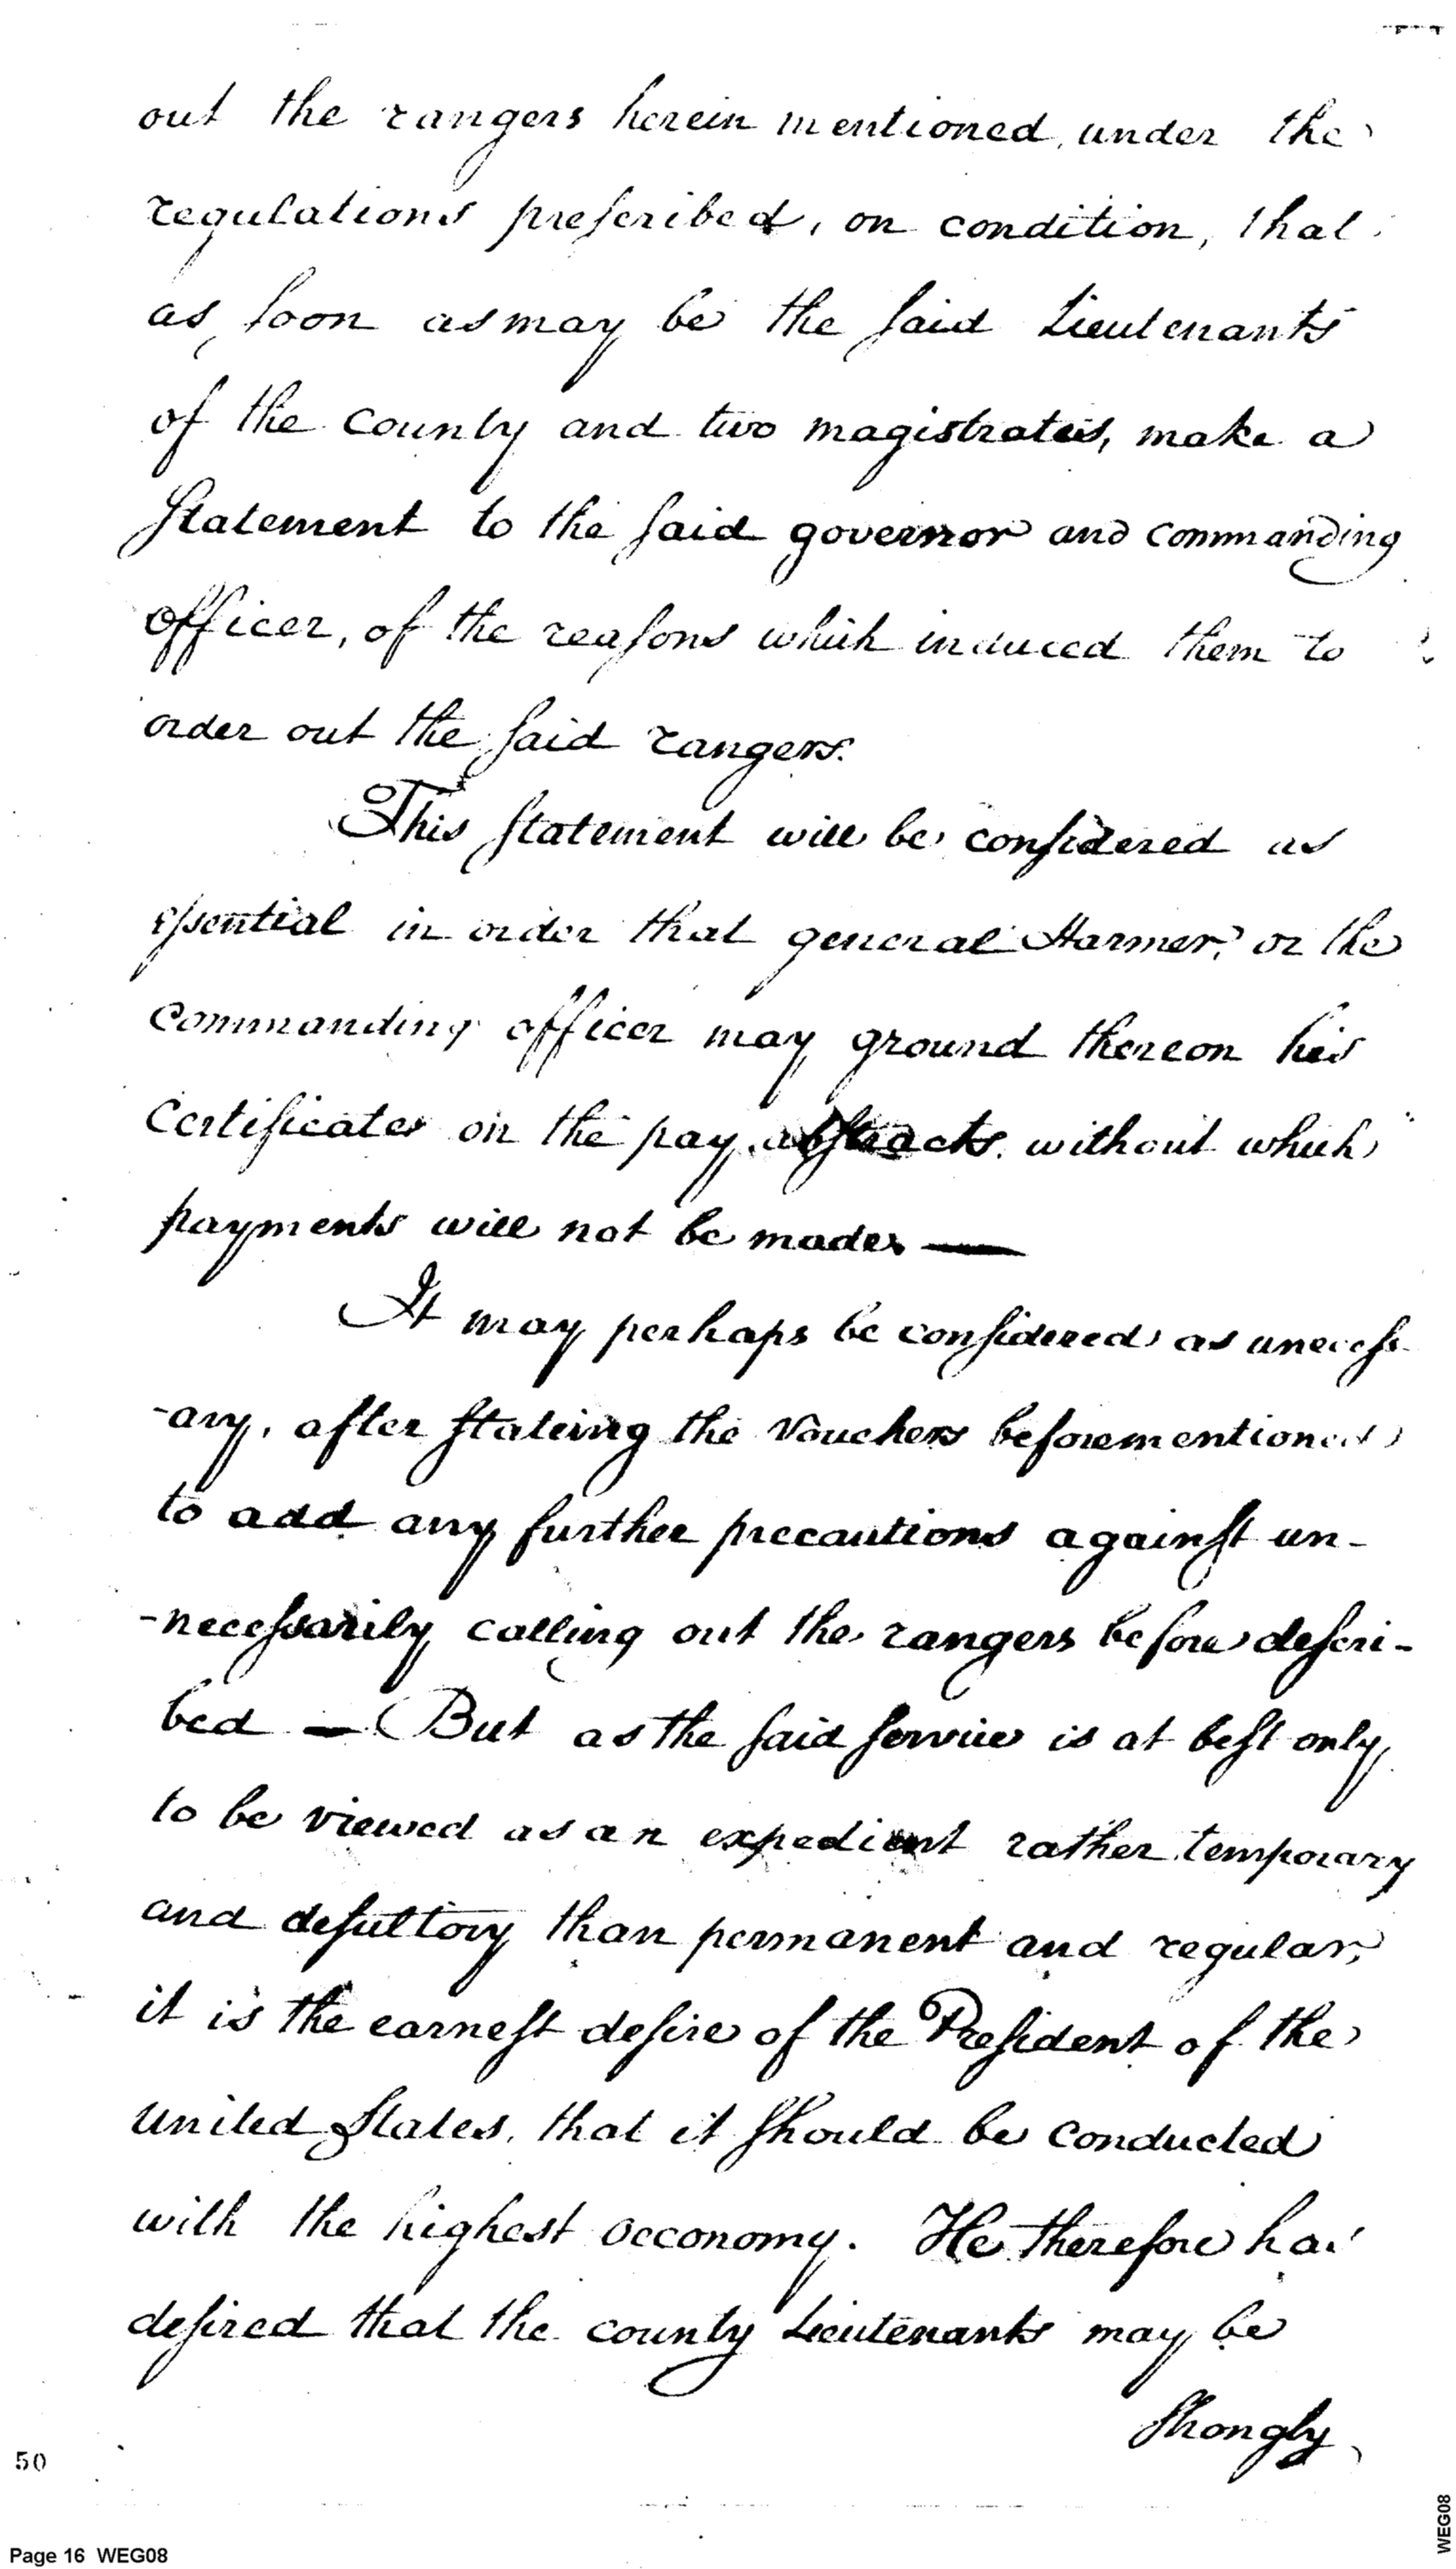 out the rangers herein mentioned, under the
regulations prescribed, on condition, that
as soon as may be the said Lieutenants
of the county and two magistrates, make a
Statement to the said governor and commanding
officer, of the reasons which induced them to
order out the said rangers.
This statement will be considered as
essential in order that general Harmer, or the
Commanding officer may ground thereon his
Certificates on the pay abstracts. without which
payments will not be made. —
It may perhaps be considered as unecess-
-ary, after stateing the Vouchers beforementioned
to add any further precautions against un-
-necessarily calling out the rangers before descri-
bed — But as the said service is at best only
to be viewed as an expedient rather temporary
and desultory than permanent and regular,
it is the earnest desire of the President of the
United States, that it should be conducted
with the highest oeconomy. He therefore has
desired that the county Lieutenants may be
Strongly
50
Page 16 WEG08
WEG08